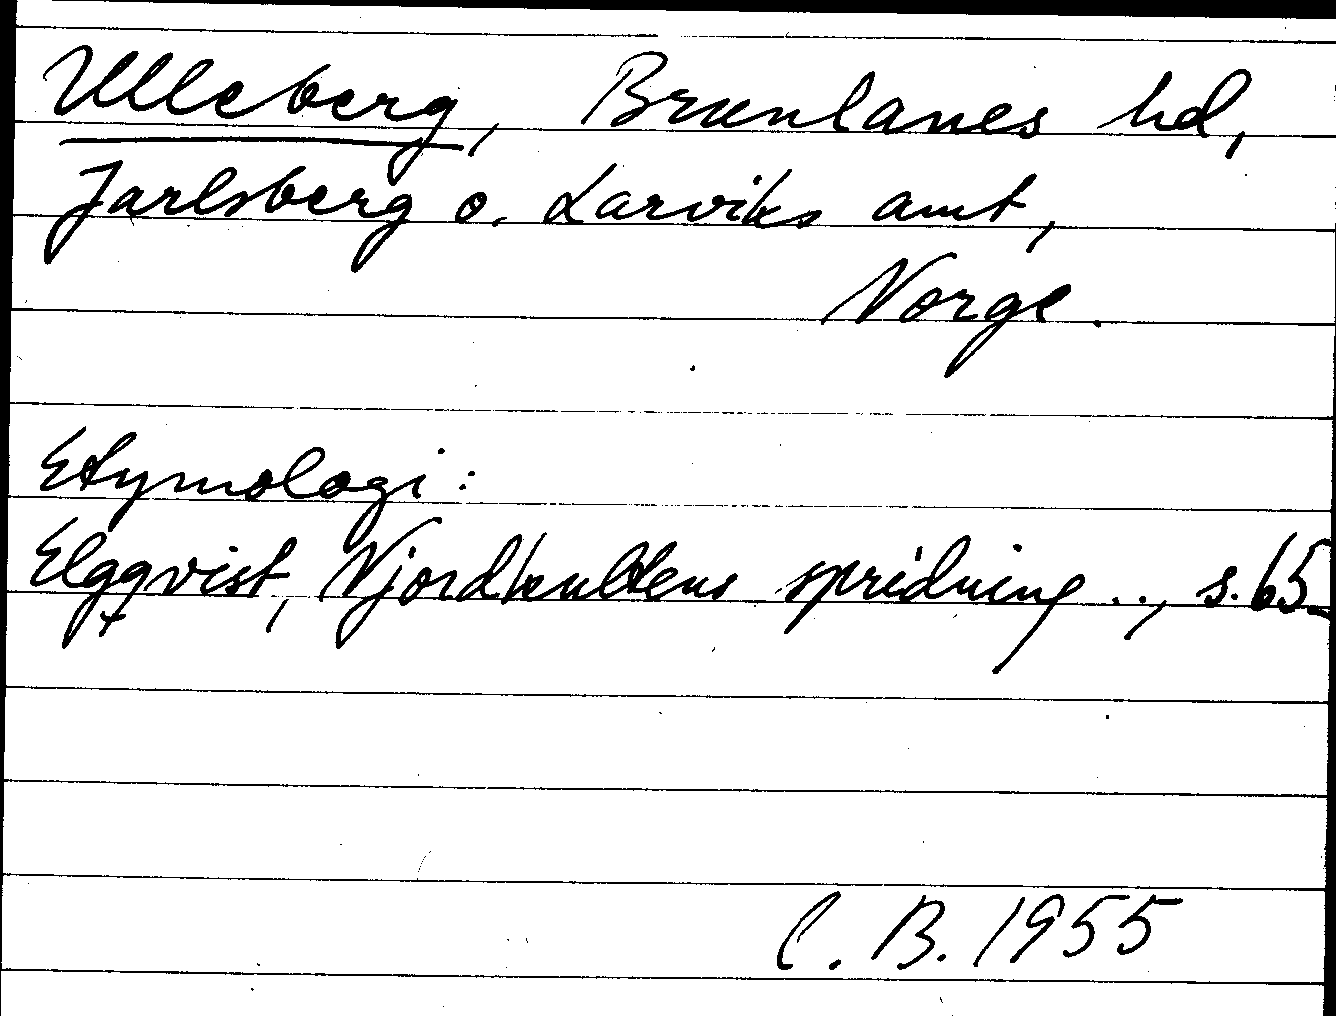 Ulleberg, Brunlanes hd,
Jarlsberg o. Larviks amt,
Norge.
Etymologi:
Elgqvist, Njordkultens spridning .., s. 65
C. B. 1955